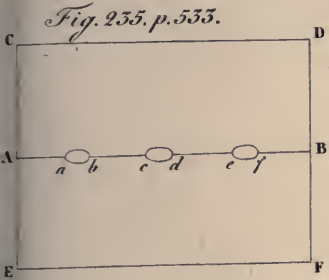 Fig. 235. p. 533.
C D
A a b c d e f B
E F